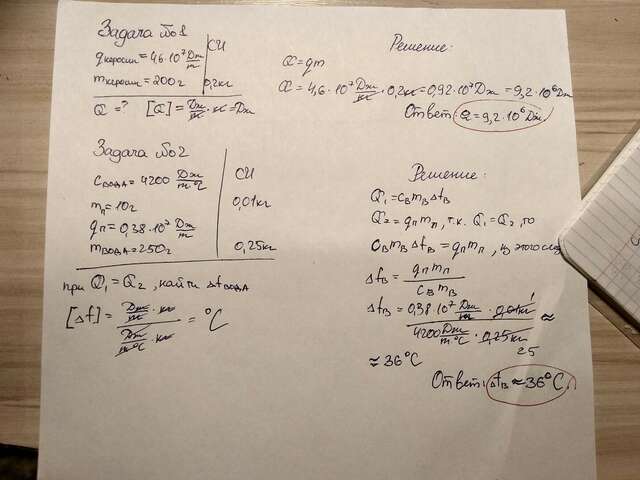 Задача №1
qкеросин = 4,6·10⁷ Дж/m | СИ
mкеросин = 200г | 0,2кг
Q = ? [Q] = Дж/кг · кг = Дж
Решение:
Q = qm
Q = 4,6·10⁷ Дж/кг · 0,2кг = 0,92·10⁷ Дж = 9,2·10⁶ Дж
Ответ: Q = 9,2·10⁶ Дж.
Задача №2
cвода = 4200 Дж/m·°C | СИ
mп = 10г | 0,01кг
qп = 0,38·10⁷ Дж/m
mвода = 250г | 0,25кг
при Q₁ = Q₂, найти Δtвода
[Δt] = (Дж/кг · кг)/(Дж/m°C · кг) = °C
Решение:
Q₁ = cвmвΔtв
Q₂ = qпmп, т.к. Q₁ = Q₂, то
cвmвΔtв = qпmп, из этого след
Δtв = qпmп/cвmв
Δtв = (0,38·10⁷ Дж/m · 0,01кг 1)/(4200 Дж/m·°C · 0,25кг 25) ≈
≈ 36°C
Ответ: Δtв ≈ 36°C.